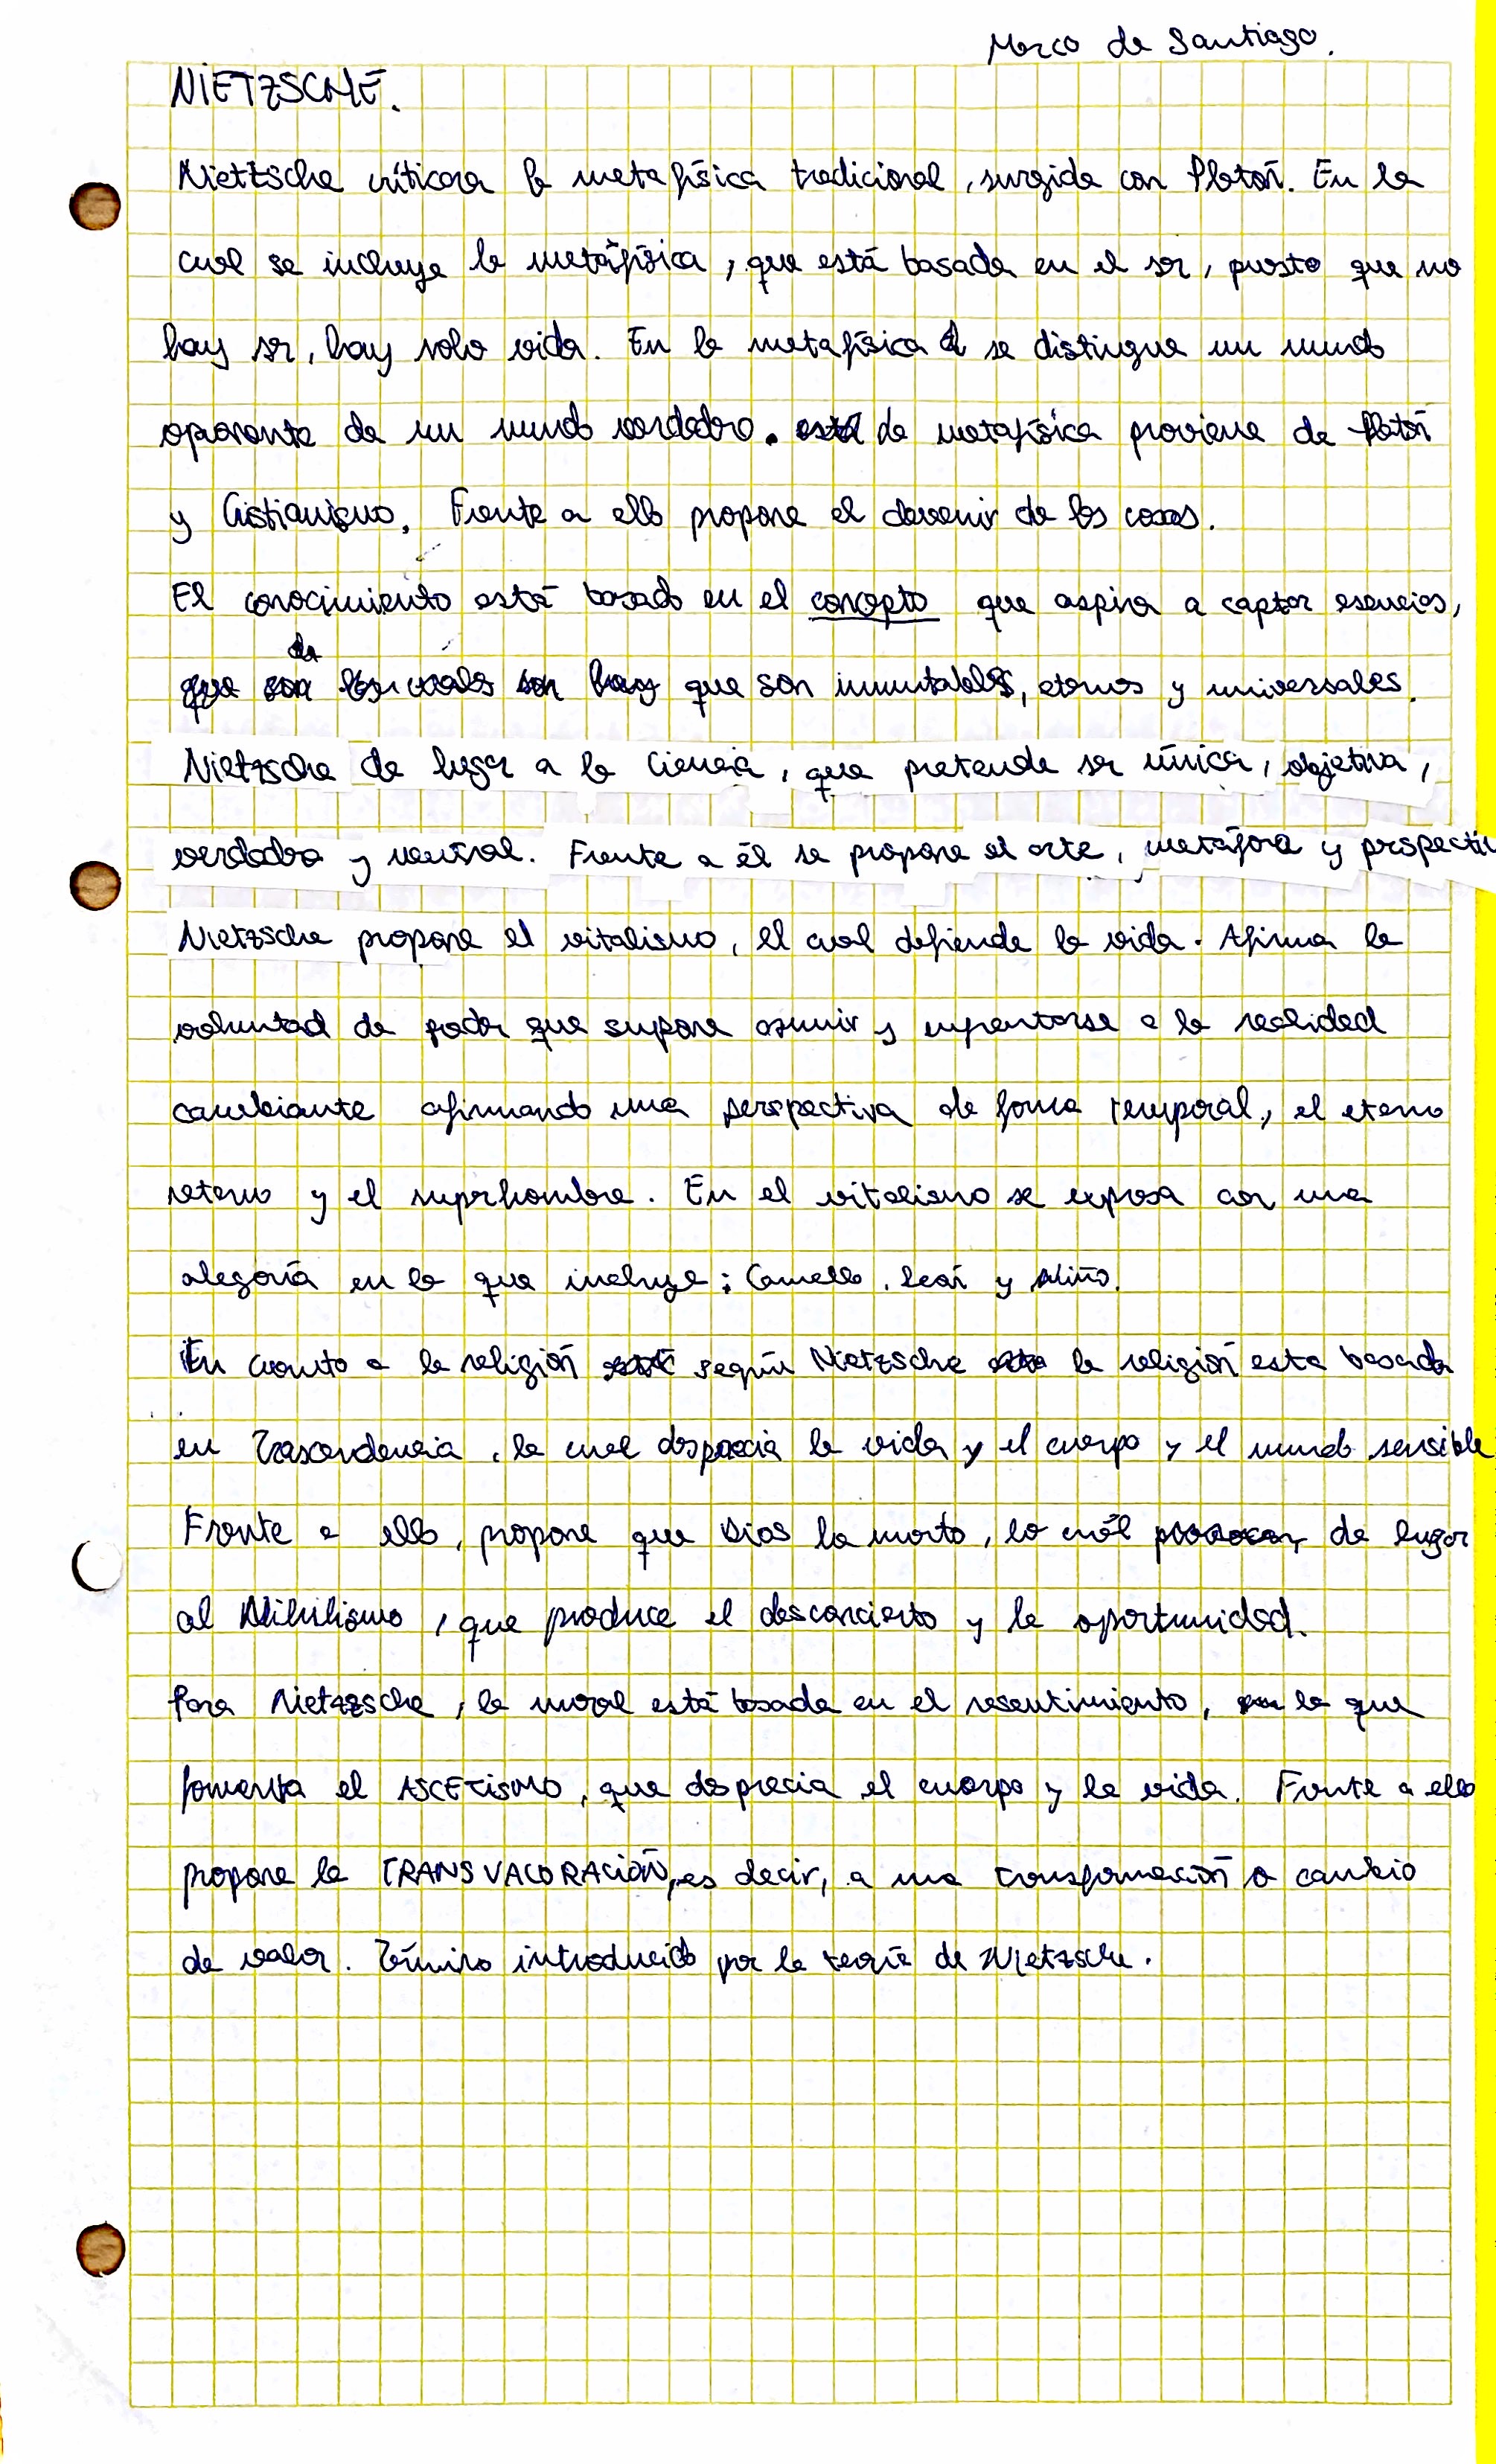 Marco de Santiago.
NIETZSCHE.
Nietzsche criticara la metafísica tradicional, surgida con Platón. En la
cual se incluye la metáfísica, que está basada en el ser, puesto que no
hay ser, hay solo vida. En la metafísica se distingue un mundo
aparente de un mundo verdadero. de metafísica proviene de Platón
y Cristianismo, Frente a ello propone el devenir de las cosas.
El conocimiento está basado en el concepto que aspira a captar esencias,
da
que las cuales hay que son inmutables, eternos y universales.
Nietzsche da lugar a la Ciencia, que pretende ser única, objetiva,
verdadera y neutral. Frente a él se propone el arte, metáfora y perspectiv
Nietzsche propone el vitalismo, el cual defiende la vida. Afirma la
voluntad de poder que supone asumir y enfrentarse a la realidad
cambiante afirmando una perspectiva de forma temporal, el eterno
retorno y el superhombre. En el vitalismo se expresa con una
alegoría en la que incluye: Camello, León y Niño.
En cuanto a la religión según Nietzsche la religión esta basada
en Trascendencia, la cual desprecia la vida y el cuerpo y el mundo sensible
Frente a ello, propone que Dios ha muerto, lo cuál da lugar
al Nihilismo, que produce el desconcierto y la oportunidad.
Para Nietzsche, la moral está basada en el resentimiento, la que
fomenta el ASCETISMO, que desprecia el cuerpo y la vida. Frente a ello
propone la TRANSVALORACIÓN, es decir, a una transformación o cambio
de valor. Término introducido por la teoría de Nietzsche.